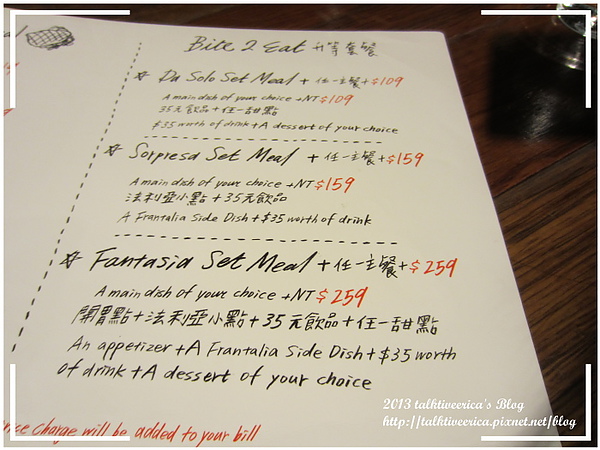 Bite 2 Eat 升等套餐
☆ Da Solo Set Meal + 任一主餐 + $109
A main dish of your choice + NT $109
35元飲品 + 任一甜點
$35 worth of drink + A dessert of your choice
☆ Sorpresa Set Meal + 任一主餐 + $159
A main dish of your choice + NT $159
法利亞小點 + 35元飲品
A Frantalia Side Dish + $35 worth of drink
☆ Fantasia Set Meal + 任一主餐 + $259
A main dish of your choice + NT $259
開胃點 + 法利亞小點 + 35元飲品 + 任一甜點
An appetizer + A Frantalia Side Dish + $35 worth
of drink + A dessert of your choice
charge will be added to your bill
2013 talktiveerica's Blog
http://talktiveerica.pixnet.net/blog